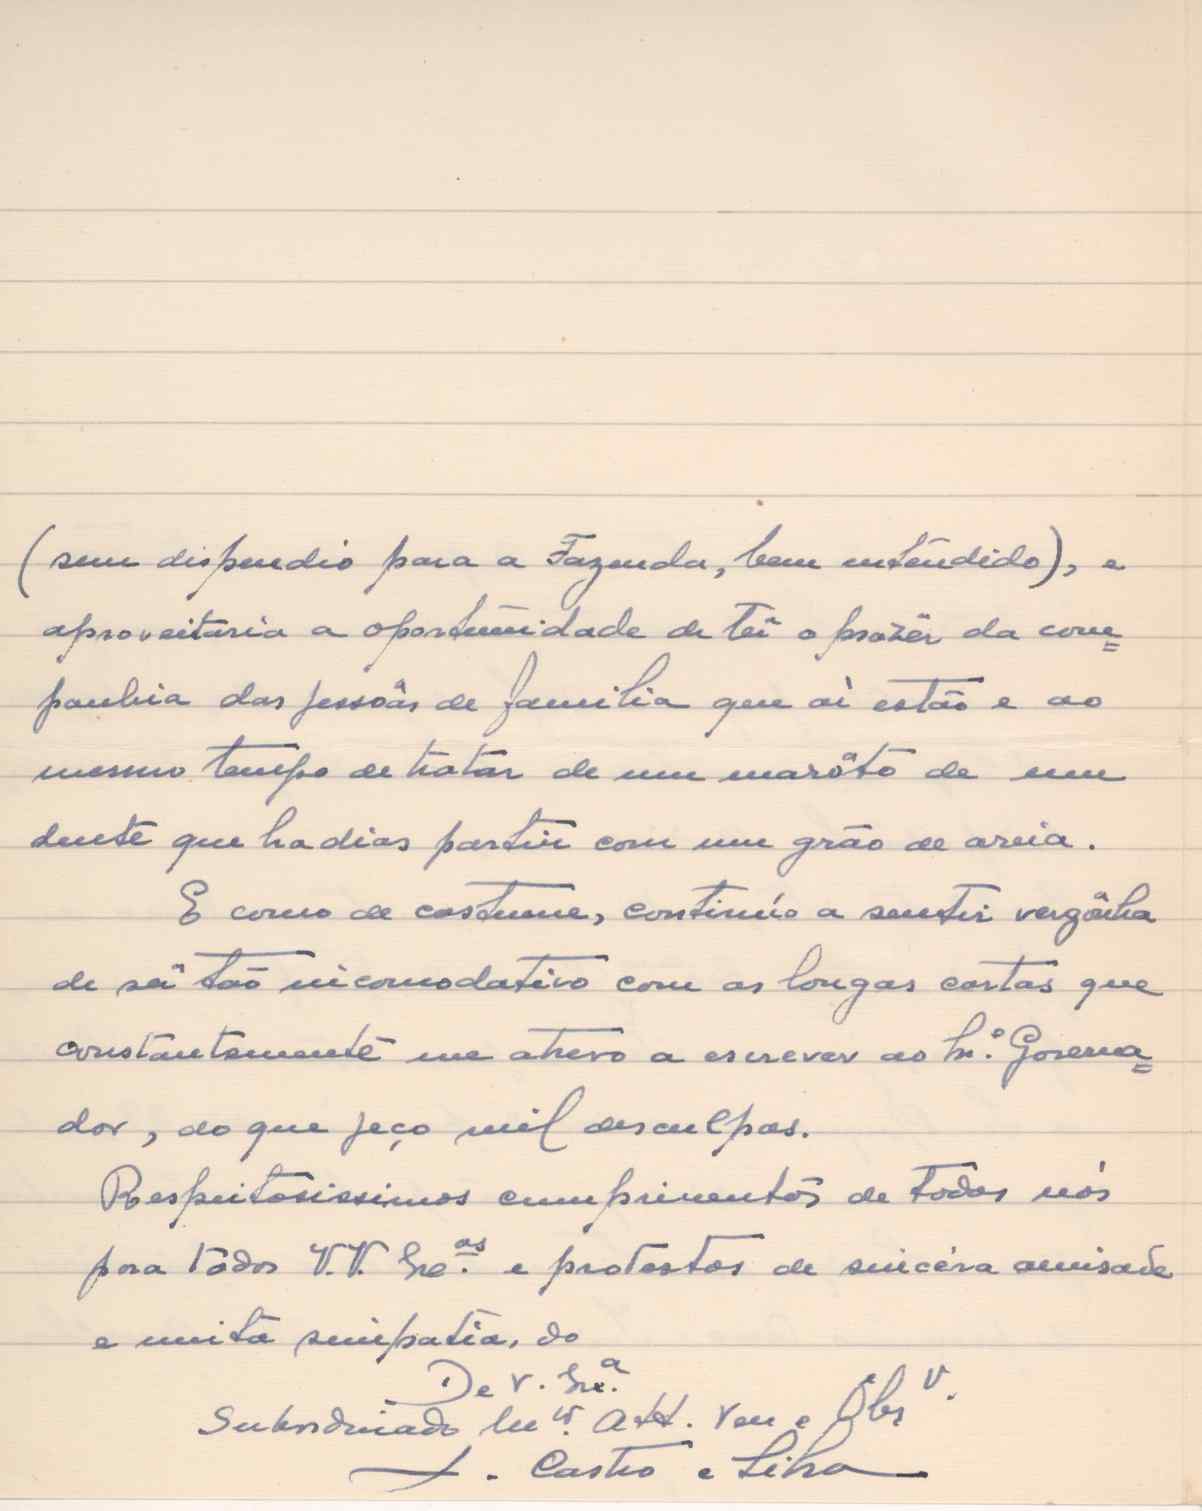 (sem dispendio para a Fazenda, bem entendido), e
aproveitaria a oportunidade de ter o prazêr da com=
panhia das pessôas de familia que aì estão e ao
mesmo tempo de tratar de um marôto de um
dente que ha dias partiu com um grão de areia.
E como de costume, continúo a sentir vergônha
de sêr tão incomodativo com as longas cartas que
constantemente me atrevo a escrever ao Snr. Governa=
dor, do que peço mil desculpas.
Respeitosissimos cumprimentos de todos nós
para todos V.V. Exc.as e protestos de sincéra amisade
e muita simpatia, do
De V. Exc.a
Subordinado Att. Ven e Obr
Castro e Silva